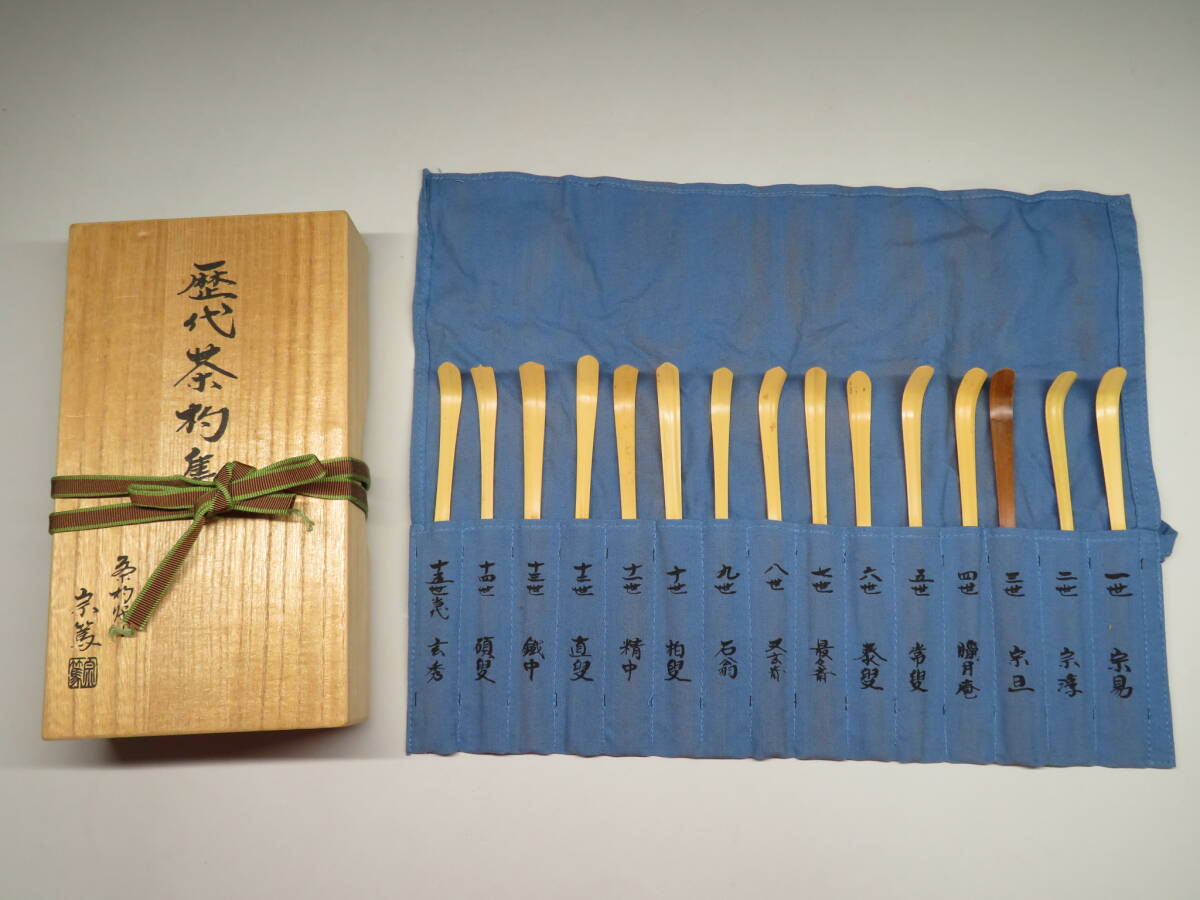 歴代茶杓集
茶杓師
宗篤
宗篤
一世 宗易
二世 宗淳
三世 宗旦
四世 臘月庵
五世 常叟
六世 泰叟
七世 最々斎
八世 又玄斎
九世 石翁
十世 柏叟
十一世 精中
十二世 直叟
十三世 鐵中
十四世 碩叟
十五世当代 玄秀